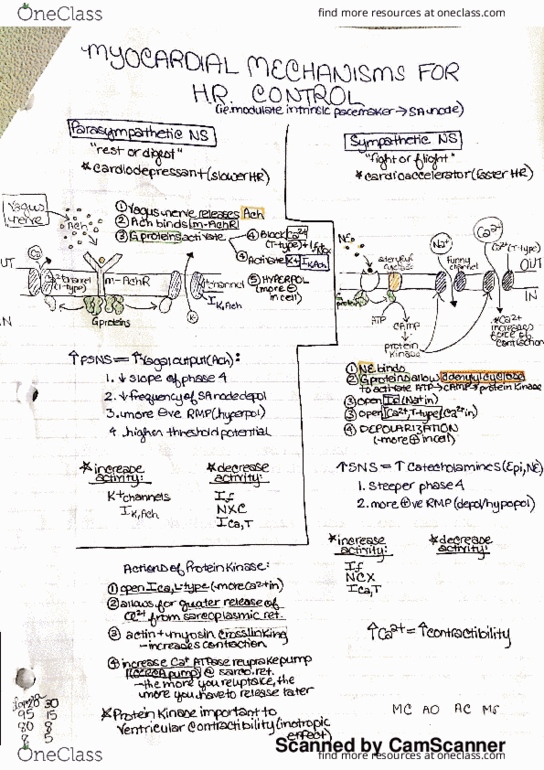 OneClass
find more resources at oneclass.com
MYOCARDIAL MECHANISMS FOR
H.R. CONTROL
(ie. modulate intrinsic pacemaker → SA node)
Parasympathetic NS
"rest or digest"
*cardiodepressant (slower HR)
Vagus nerve
Ach
① Vagus nerve releases Ach
② Ach binds m-AchR
③ G proteins activate
④ Block Ca2+
(T-type) +
④ Activate K+ IK,Ach
⑤ HYPERPOL
(more ⊖
in cell)
OUT
IN
(T-type)
m-AchR
G proteins
K+ channel
IK,Ach
K+
↑PSNS = ↑Vagal output (Ach):
1. ↓ slope of phase 4
2. ↓ frequency of SA node depol
3. more ⊖ve RMP (hyperpol)
4. higher threshold potential
*increase
activity:
K+ channels
IK,Ach
*decrease
activity:
If
NXC
ICa,T
Sympathetic NS
"fight or flight"
*cardioaccelerator (faster HR)
NE
adenylyl
cyclase
Na+
funny
channel
Ca2+
Ca2+ (T-type)
OUT
IN
ATP
cAMP
protein
kinase
*Ca2+
increases
force of
contraction
① NE binds
② G proteins allow adenylyl cyclase
to activate ATP → cAMP → protein kinase
③ open If (Na+ in)
③ open ICa2+, T-type (Ca2+ in)
④ DEPOLARIZATION
(-more ⊕ in cell)
↑SNS = ↑ Catecholamines (Epi, NE)
1. Steeper phase 4
2. more ⊕ve RMP (depol/hypopol)
*increase
activity:
If
NCX
ICa,T
*decrease
activity:
↑Ca2+ = ↑contractibility
Actions of Protein Kinase:
① open ICa, L-type (-more Ca2+ in)
② allows for greater release of
Ca2+ from sarcoplasmic ret.
③ actin + myosin crosslinking
- increases contraction
④ increase Ca+ ATPase reuptake pump
(SERCA pump) @ sarco. ret.
- the more you reuptake, the
more you have to release later
*Protein Kinase important to
Ventricular Contractibility (inotropic
effect)
30
95 15
80 8
8 5
MC AO AC MS
Scanned by CamScanner
OneClass
find more resources at oneclass.com